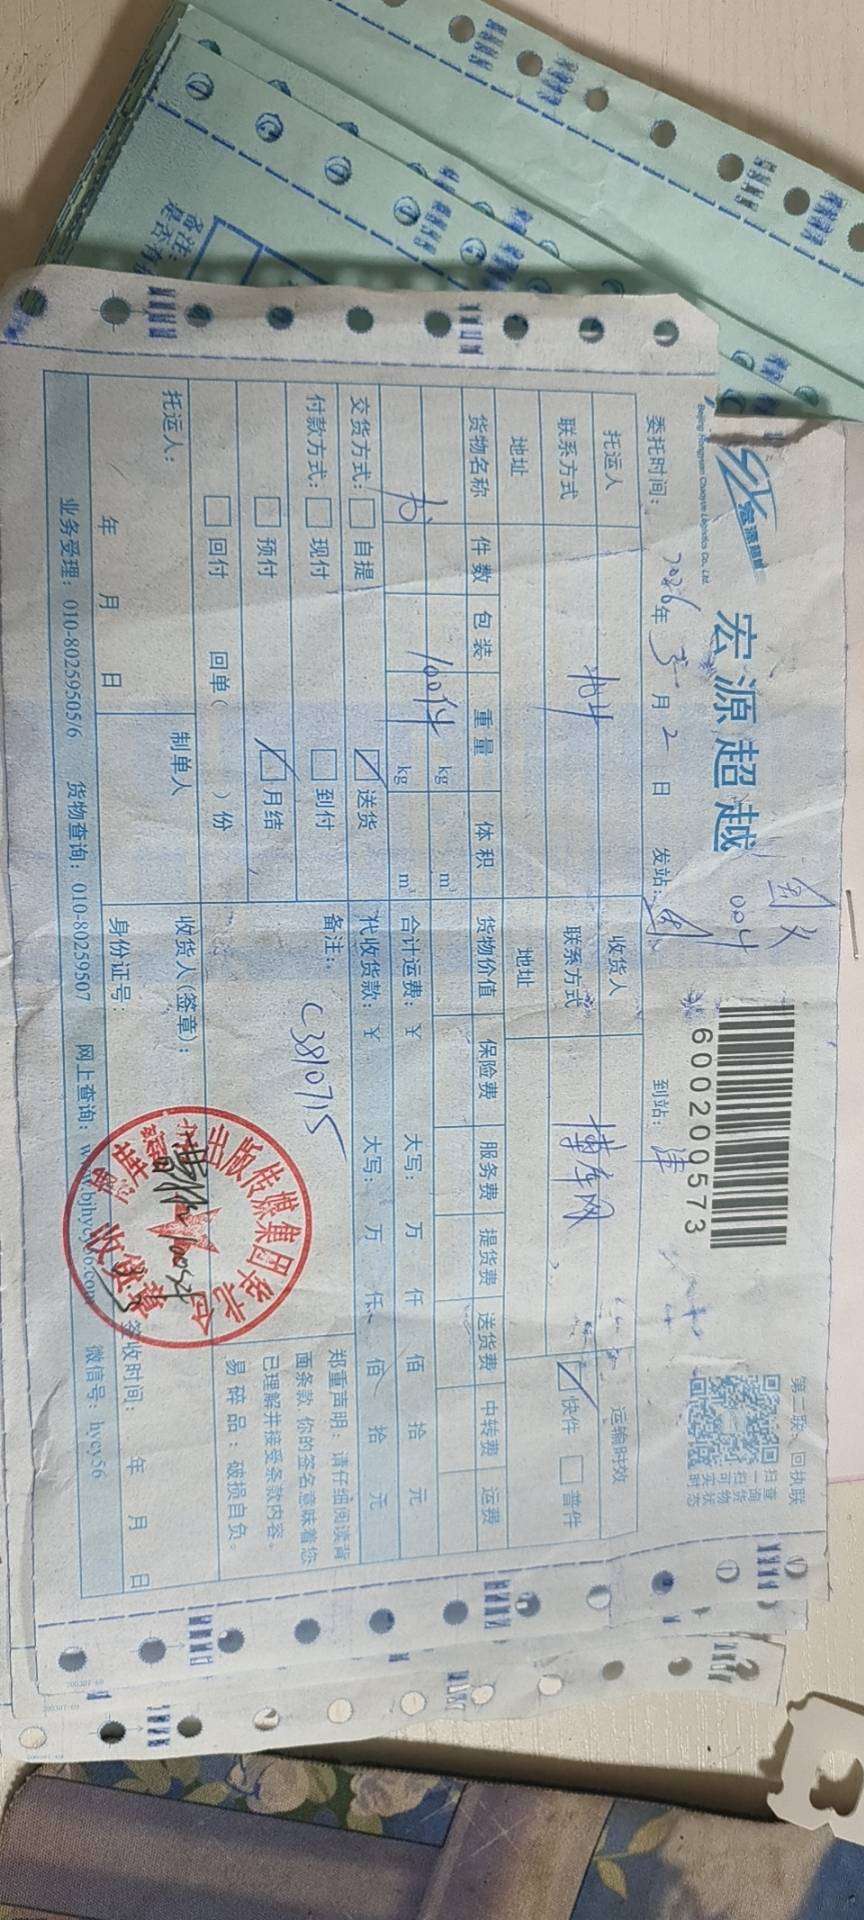 宏源超越
Beijing Hongyuan Chaoyue Logistics Co., Ltd.
004
600200573
扫一扫可
查询货物
实时状态
第二联、回执联
委托时间： 2026年 3 月 2 日 发站： 到站： 津
托运人 收货人 运输时效
联系方式 联系方式 博库网 快件 普件
地址 地址
货物名称 件数 包装 重量 体积 货物价值 保险费 服务费 提货费 送货费 中转费 运费
100件 kg m³
kg m³ 合计运费：￥ 大写： 万 仟 佰 拾 元
交货方式： 自提 送货 代收货款：￥ 大写： 万 仟 佰 拾 元
付款方式： 现付 到付 备注： C3810715
预付 月结
回付 回单（ ）份
郑重声明：请仔细阅读背
面条款 你的签名意味着您
已理解并接受条款内容。
易碎品：破损自负。
托运人： 制单人 收货人(签章)：
年 月 日 身份证号： 签收时间： 年 月 日
出版传媒集团
业务受理：010-80259505/6 货物查询：010-80259507 网上查询：www.bjhycy56.com 微信号：hycy56